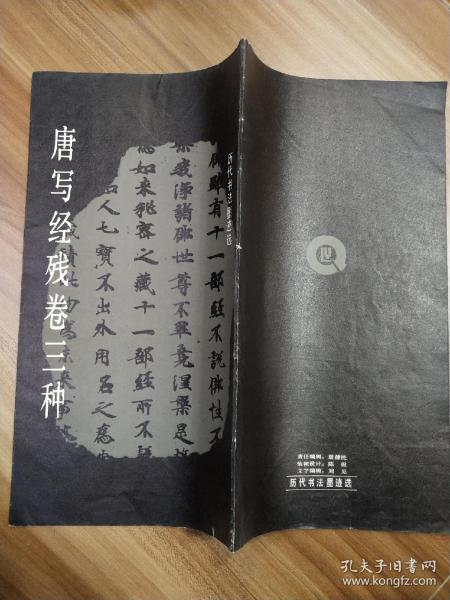 唐写经残卷三种
雖有十一部經不説佛性不
我淨諸佛世尊不畢竟涅槃是
如来秘密之藏十一部經所不説
人七寶不出外用名之為
積此物為未来
历代书法墨迹选
责任编辑：
装帧设计：陈
文字编辑：刘
历代书法墨迹选
孔夫子旧书网
www.kongfz.com